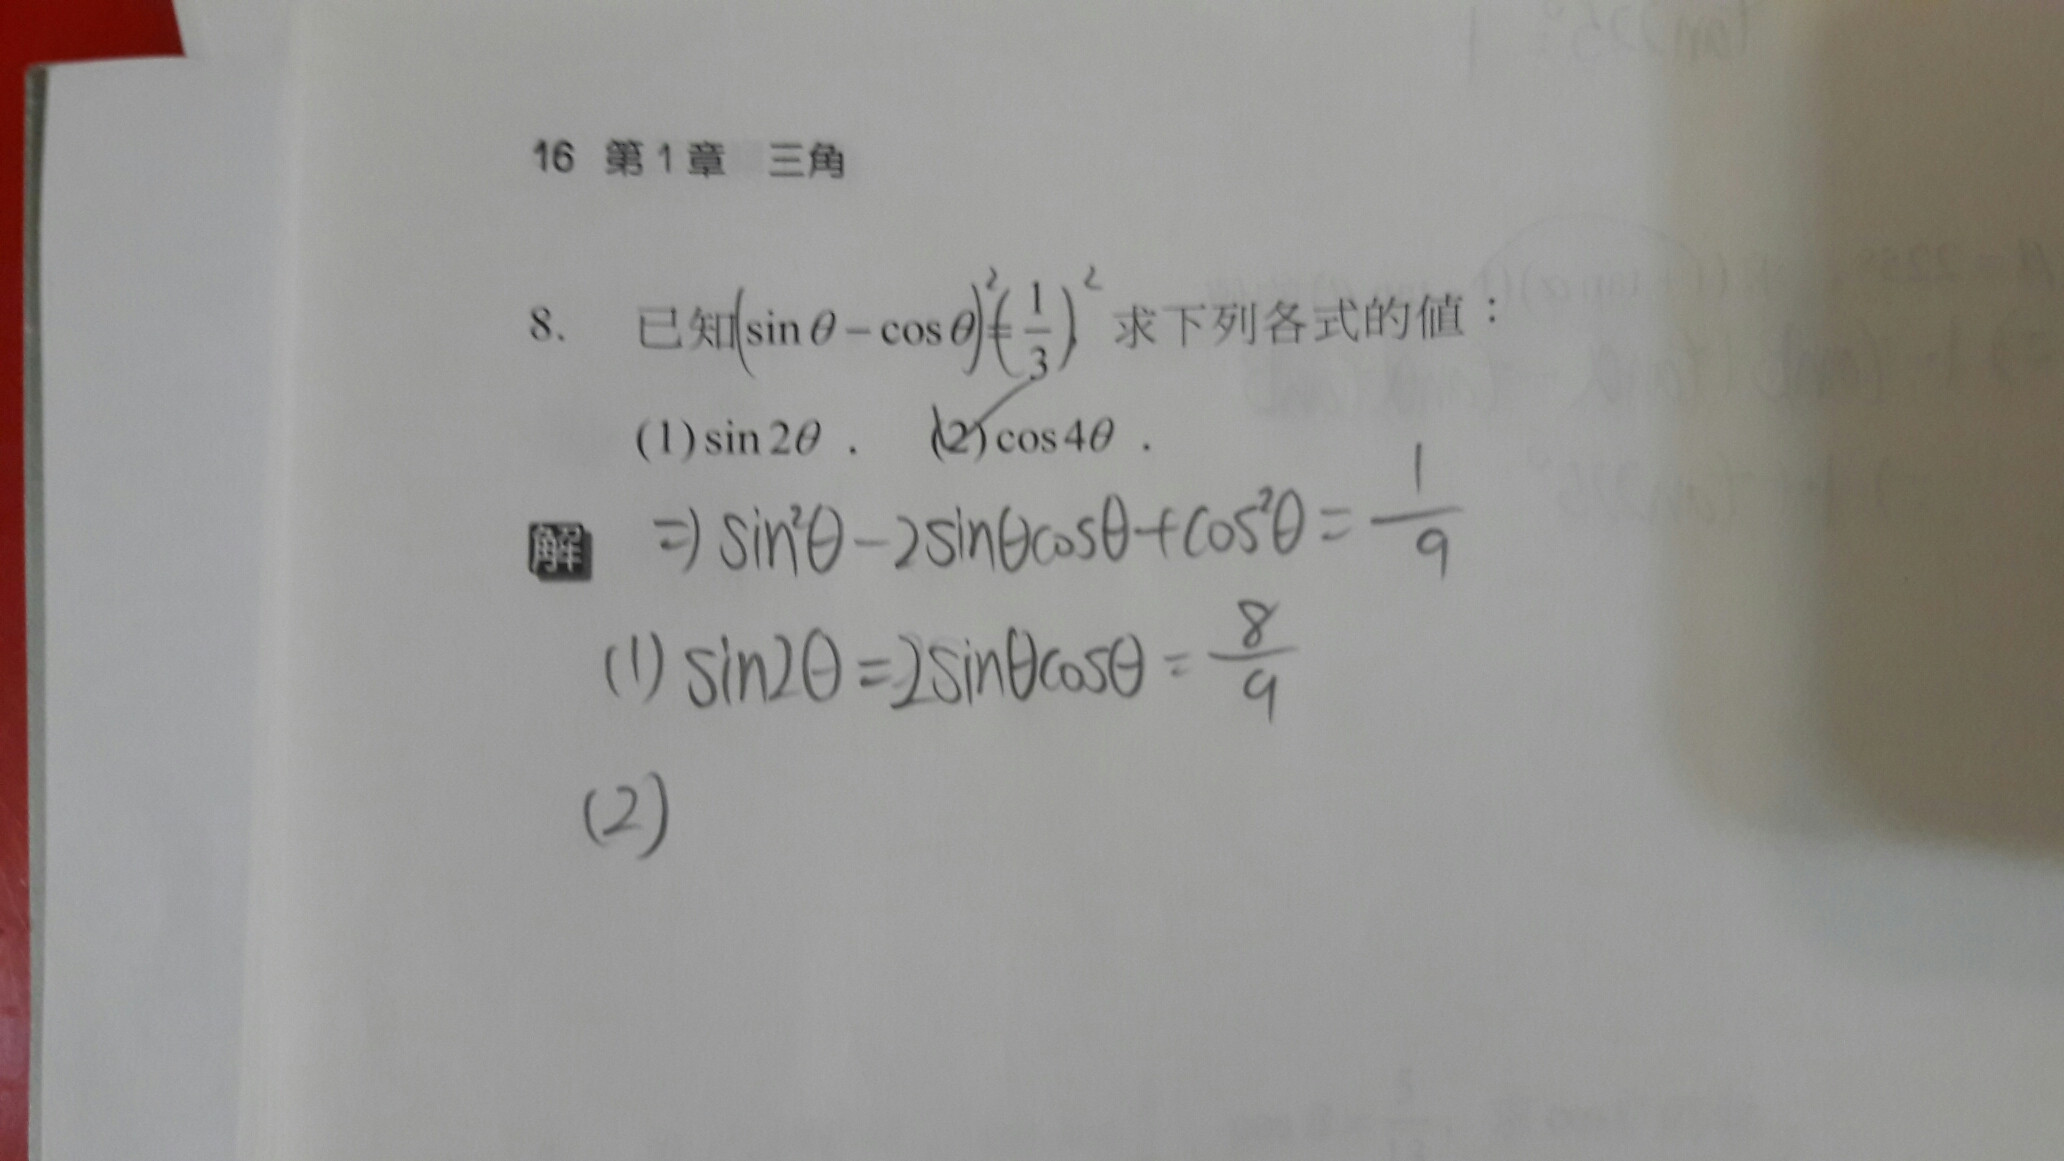 16 第1章 三角
8. 已知(sin θ − cos θ)²=(1/3)² 求下列各式的值：
(1) sin 2θ . (2) cos 4θ .
解 ⇒ sin²θ − 2sinθcosθ + cos²θ = 1/9
(1) sin2θ = 2sinθcosθ = 8/9
(2)